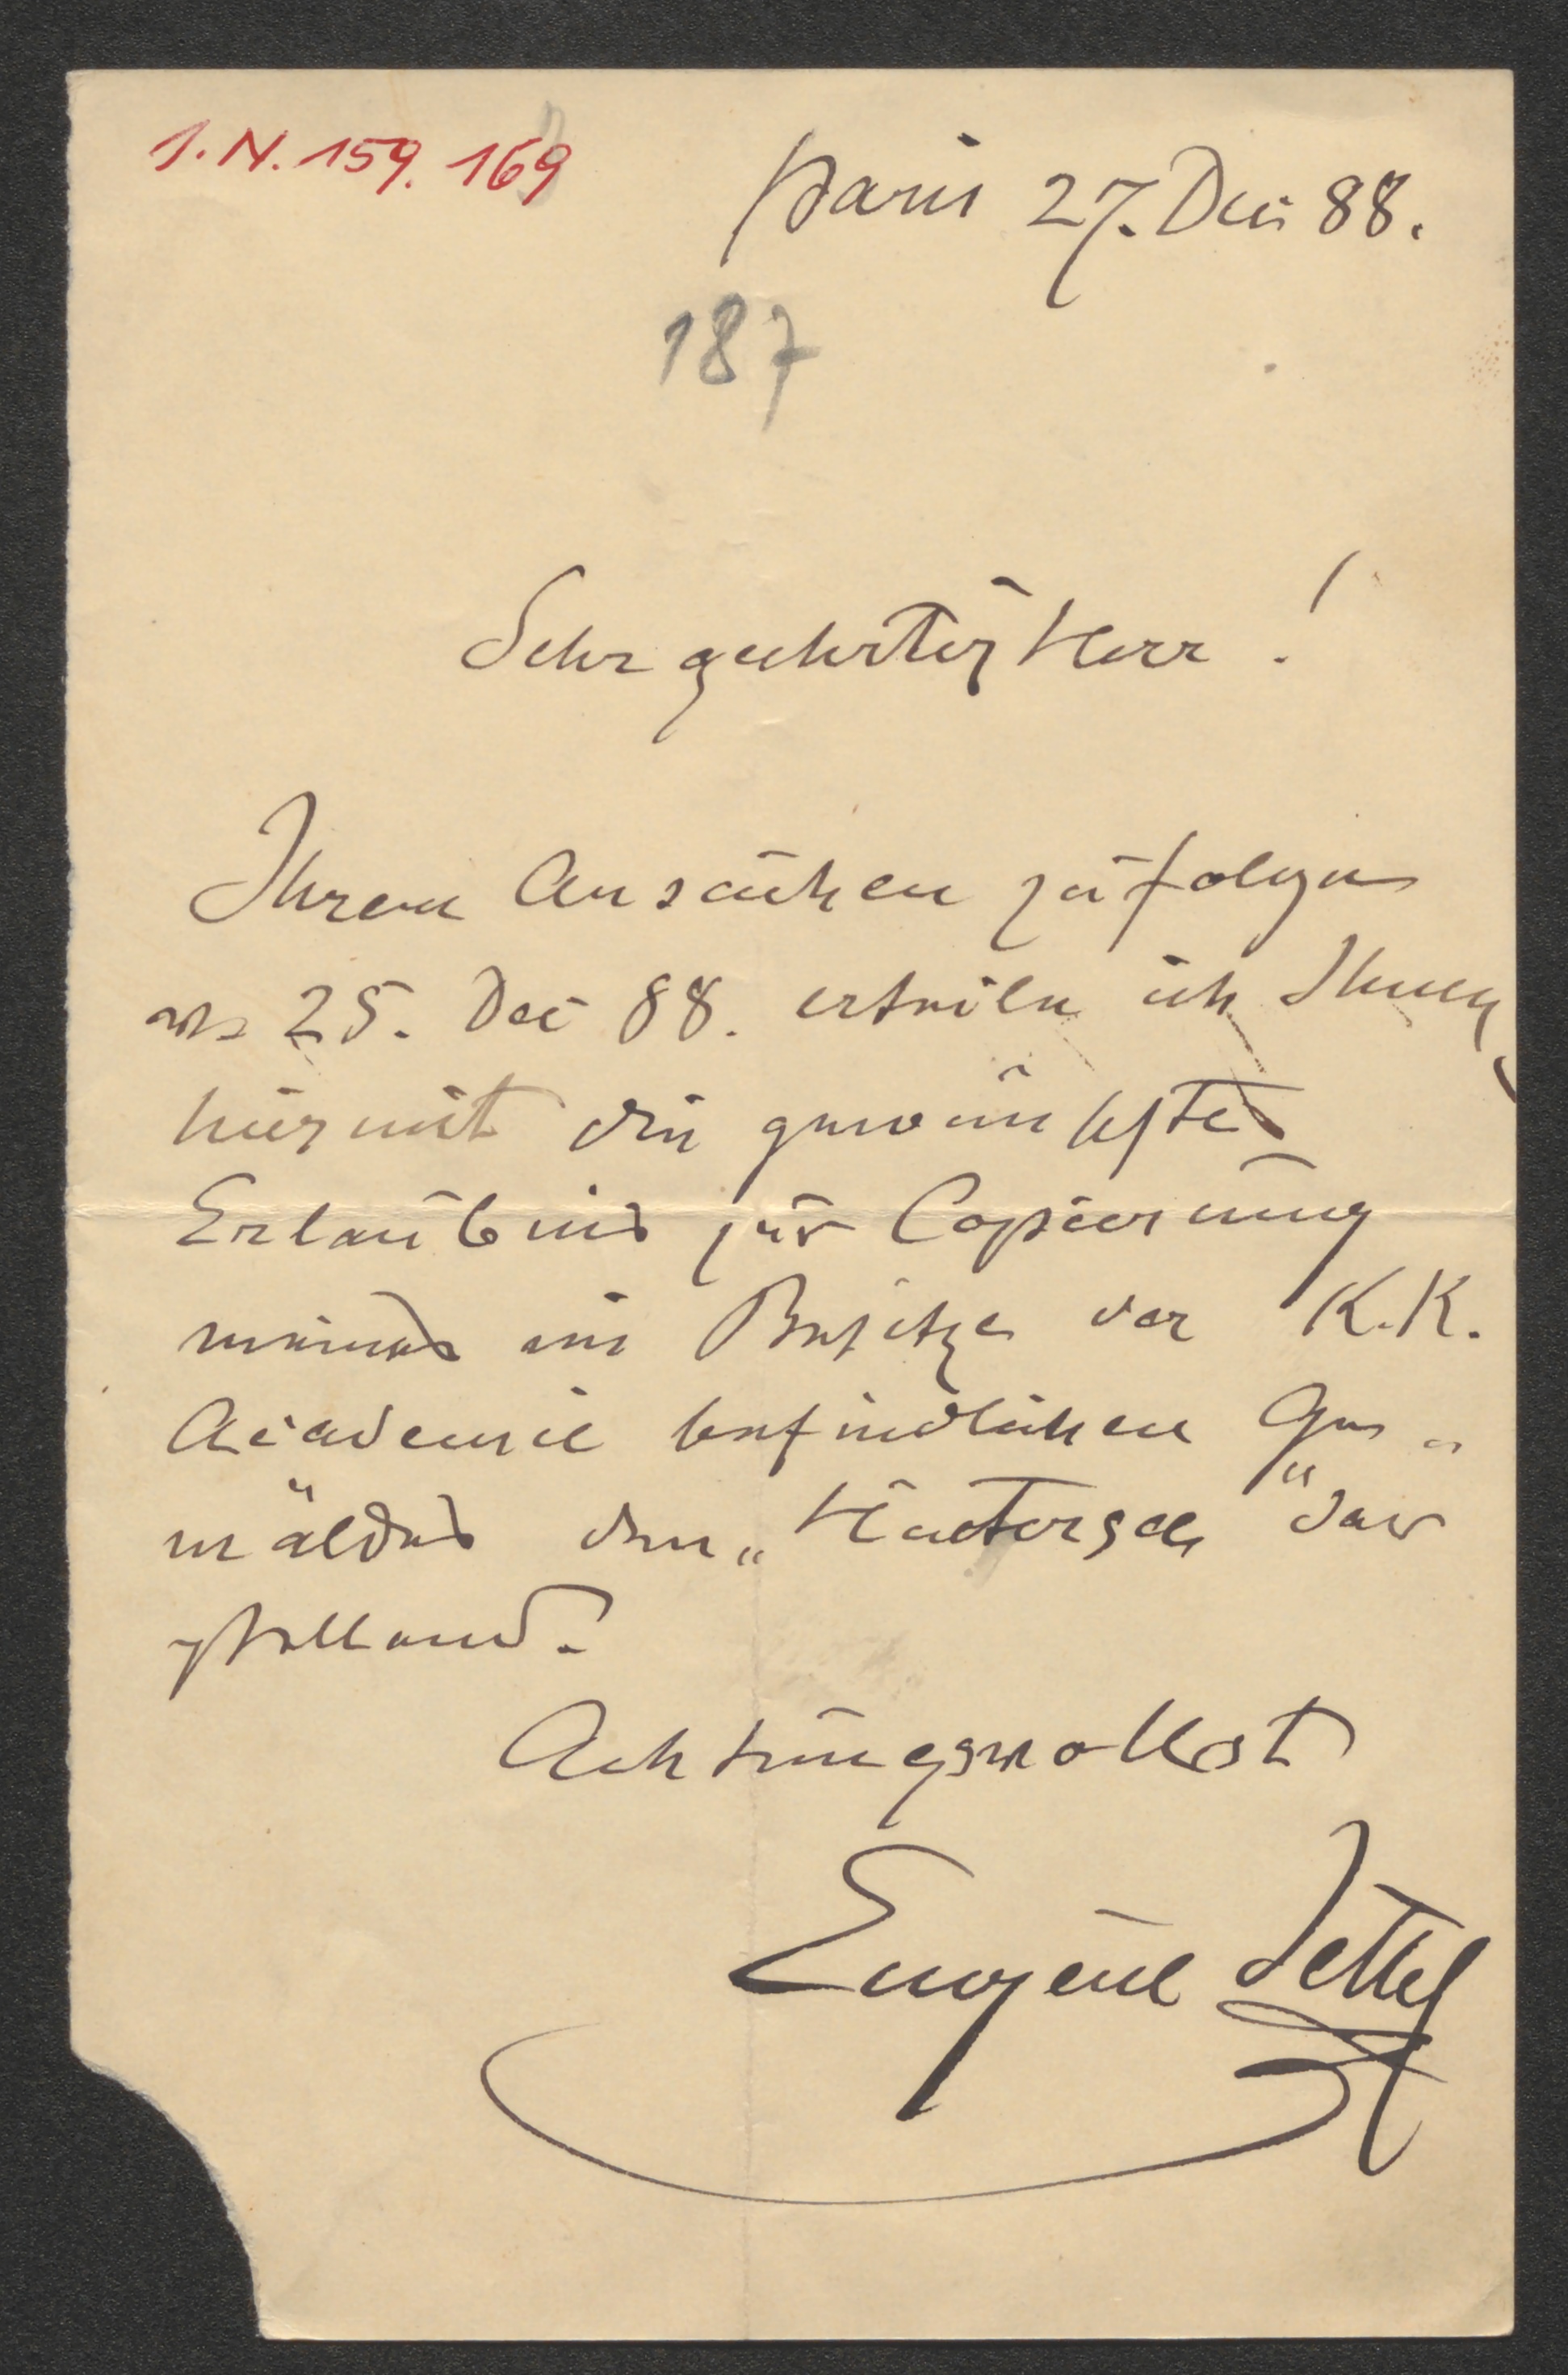 I.N. 159.169
Paris 27. Dec 88.
187
Sehr geehrter Herr!
Ihrem Ansuchen zufolge
vom 25. Dec 88. erteile ich Ihnen
hiermit die gewünschte
Erlaubnis zur Copierung
meines im Besitze der K.K.
Academie befindlichen Ge„
mäldes den „Hintersee" dar
stellend.
Achtungsvollst
Eugène Jettel